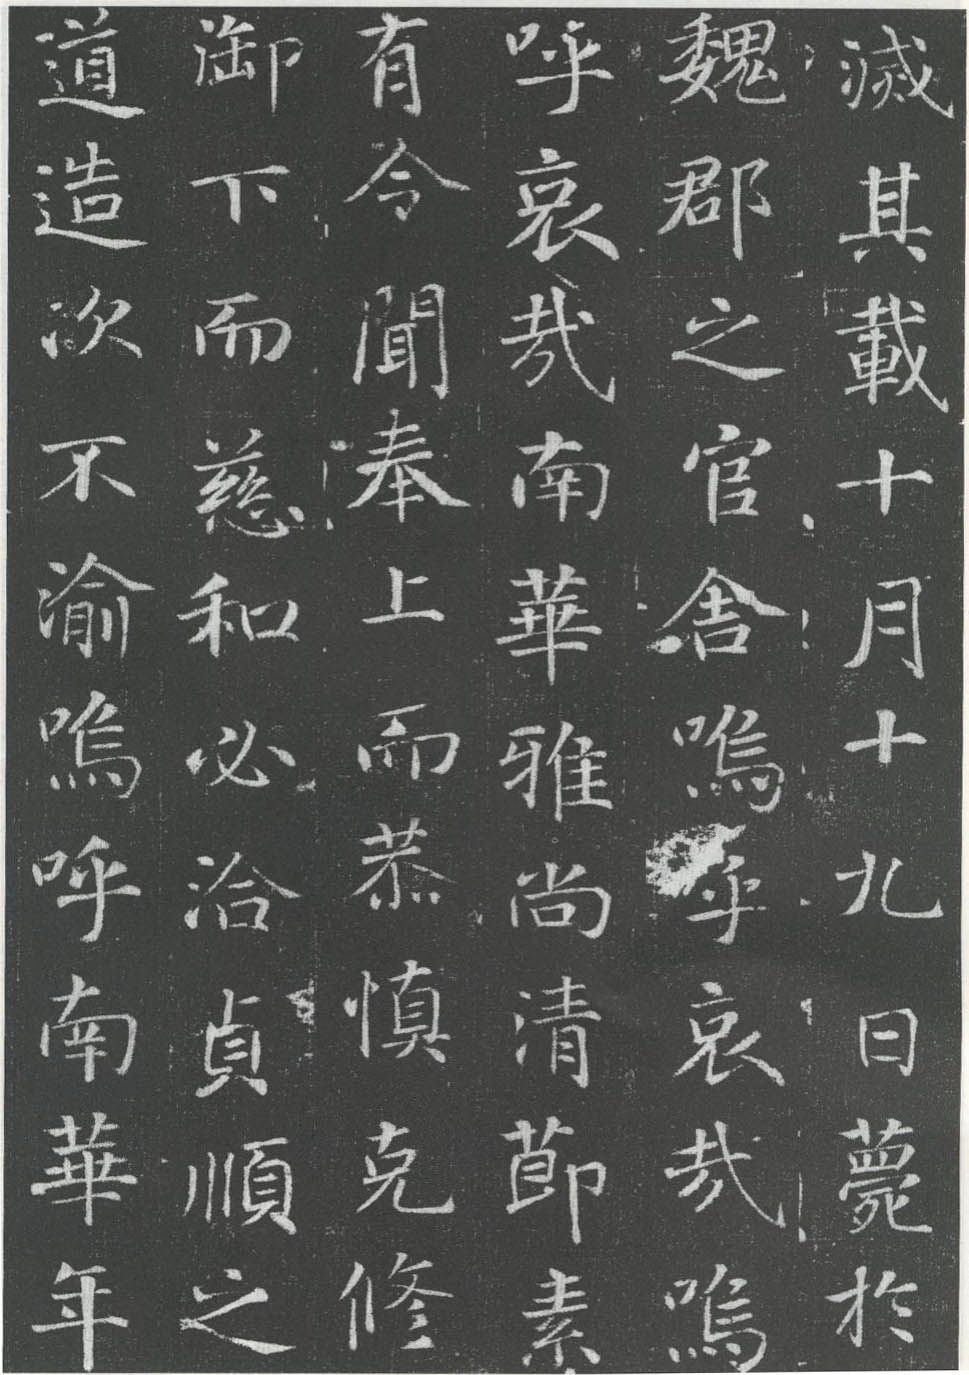 滅其載十月十九日薨於
魏郡之官舍嗚乎哀哉嗚
呼哀哉南華雅尚清節素
有令聞奉上而恭慎克修
御下而慈和必洽貞順之
道造次不渝嗚呼南華年